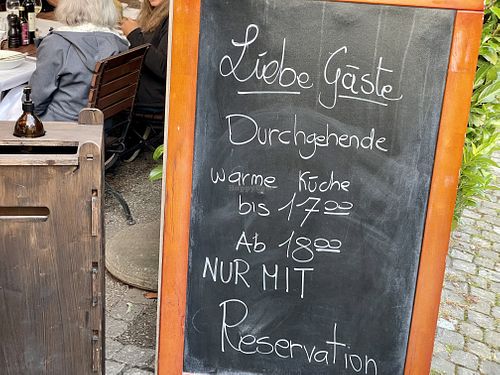 Liebe Gäste
Durchgehende
warme Küche
bis 17⁰⁰
Ab 18⁰⁰
NUR MIT
Reservation